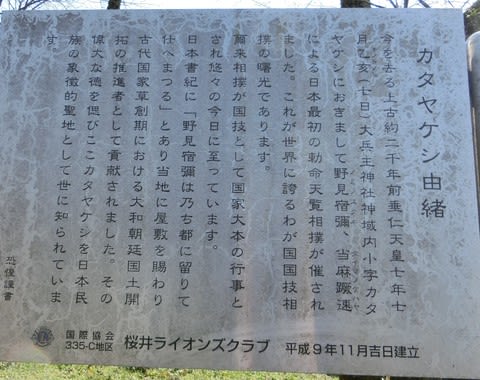 カタヤケシ由緒
今を去る上古約二千年前垂仁天皇七年七
月乙亥(七日)大兵主神社神域内小字カタ
ヤケシにおきまして野見宿彌、当麻蹶速
による日本最初の勅命天覧相撲が催され
ました。これが世界に誇るわが国国技相
撲の曙光であります。
爾来相撲が国技として国家大本の行事と
され悠々の今日に至っています。
日本書紀に「野見宿彌は乃ち都に留りて
仕へまつる」とあり当地に屋敷を賜わり
古代国家草創期における大和朝廷国土開
拓の推進者として貢献されました。その
偉大な徳を偲びここカタヤケシを日本民
族の象徴的聖地として世に知られていま
す。
恐惶謹書
国際協会
335-C地区
桜井ライオンズクラブ 平成9年11月吉日建立